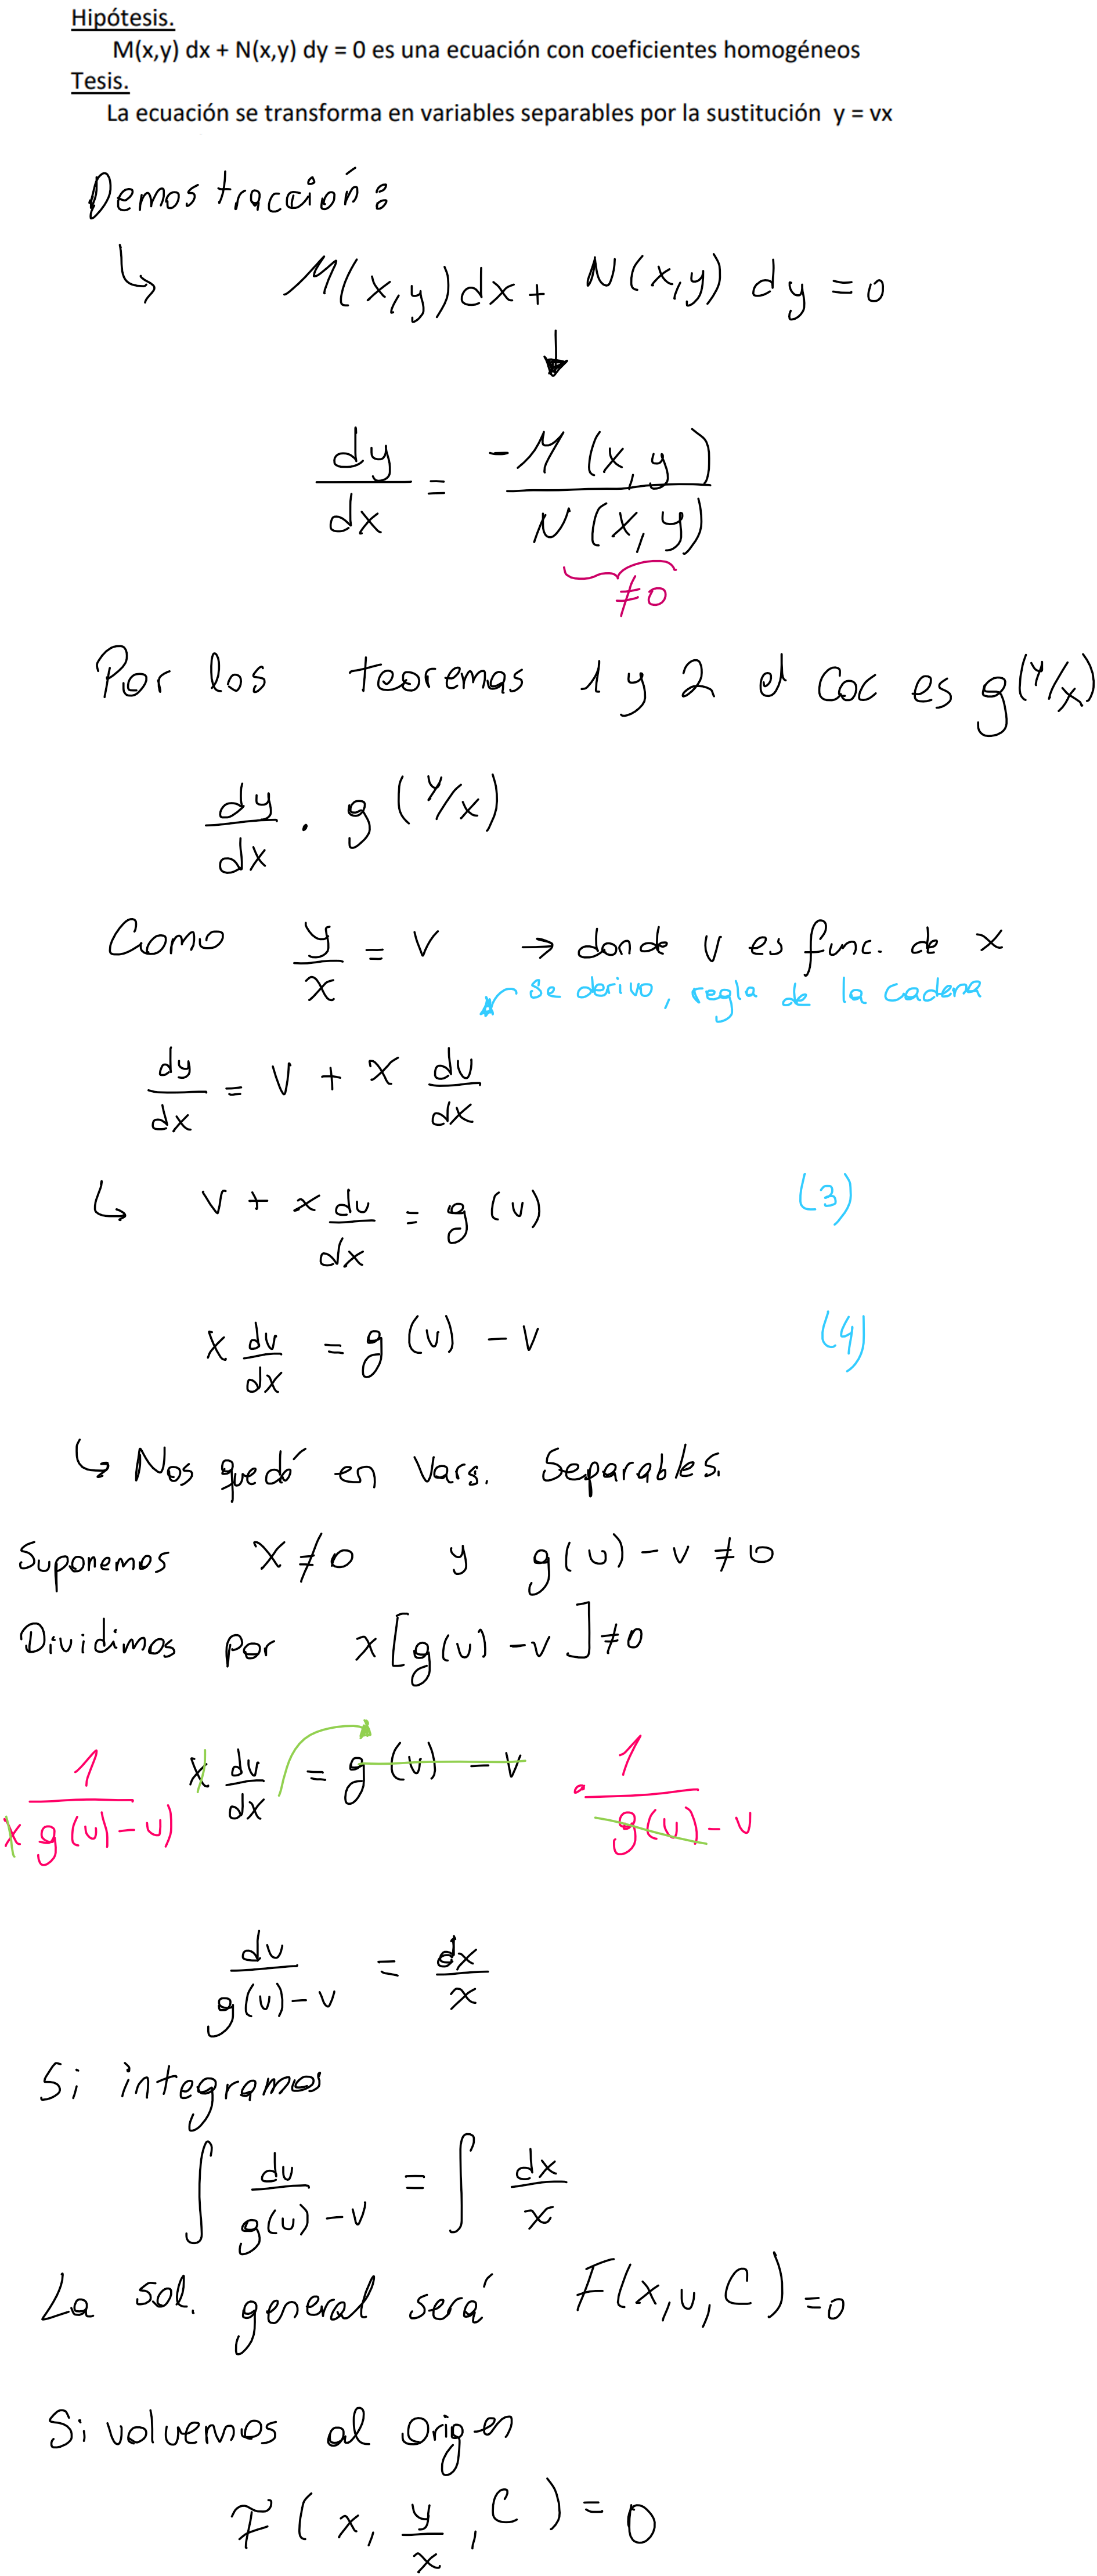 Hipótesis.
M(x,y) dx + N(x,y) dy = 0 es una ecuación con coeficientes homogéneos
Tesis.
La ecuación se transforma en variables separables por la sustitución y = vx
Demostracción:
↳ M(x,y)dx + N(x,y) dy = 0
↓
dy/dx = -M(x,y)/N(x,y)
≠0
Por los teoremas 1 y 2 el Coc es g(y/x)
dy/dx . g(y/x)
Como y/x = v → donde v es func. de x
Se derivo, regla de la cadena
dy/dx = v + x dv/dx
↳ v + x dv/dx = g(v) (3)
x dv/dx = g(v) - v (4)
↳ Nos quedó en Vars. Separables.
Suponemos x≠0 y g(v) - v ≠ 0
Dividimos por x[g(v) - v]≠0
1/(x g(v) - v) x dv/dx = g(v) - v . 1/(g(v) - v)
dv/(g(v) - v) = dx/x
Si integramos
∫ dv/(g(v) - v) = ∫ dx/x
La sol. general será F(x,v,C) = 0
Si volvemos al origen
F(x, y/x, C) = 0